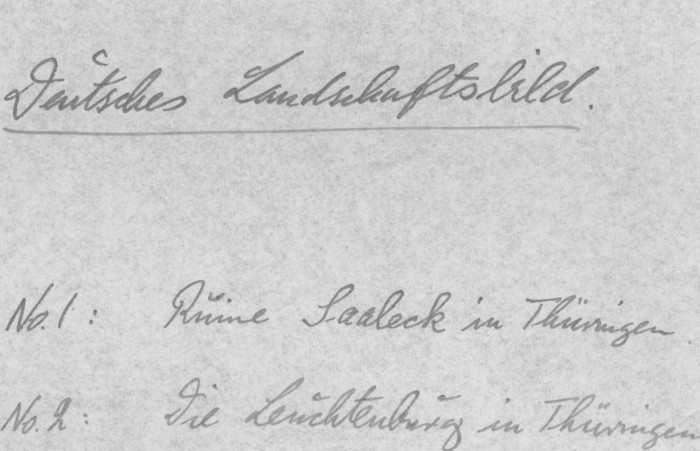 Deutsches Landschaftsbild.
No. 1 : Ruine Saaleck in Thüringen.
No. 2 : Die Leuchtenburg in Thüringen